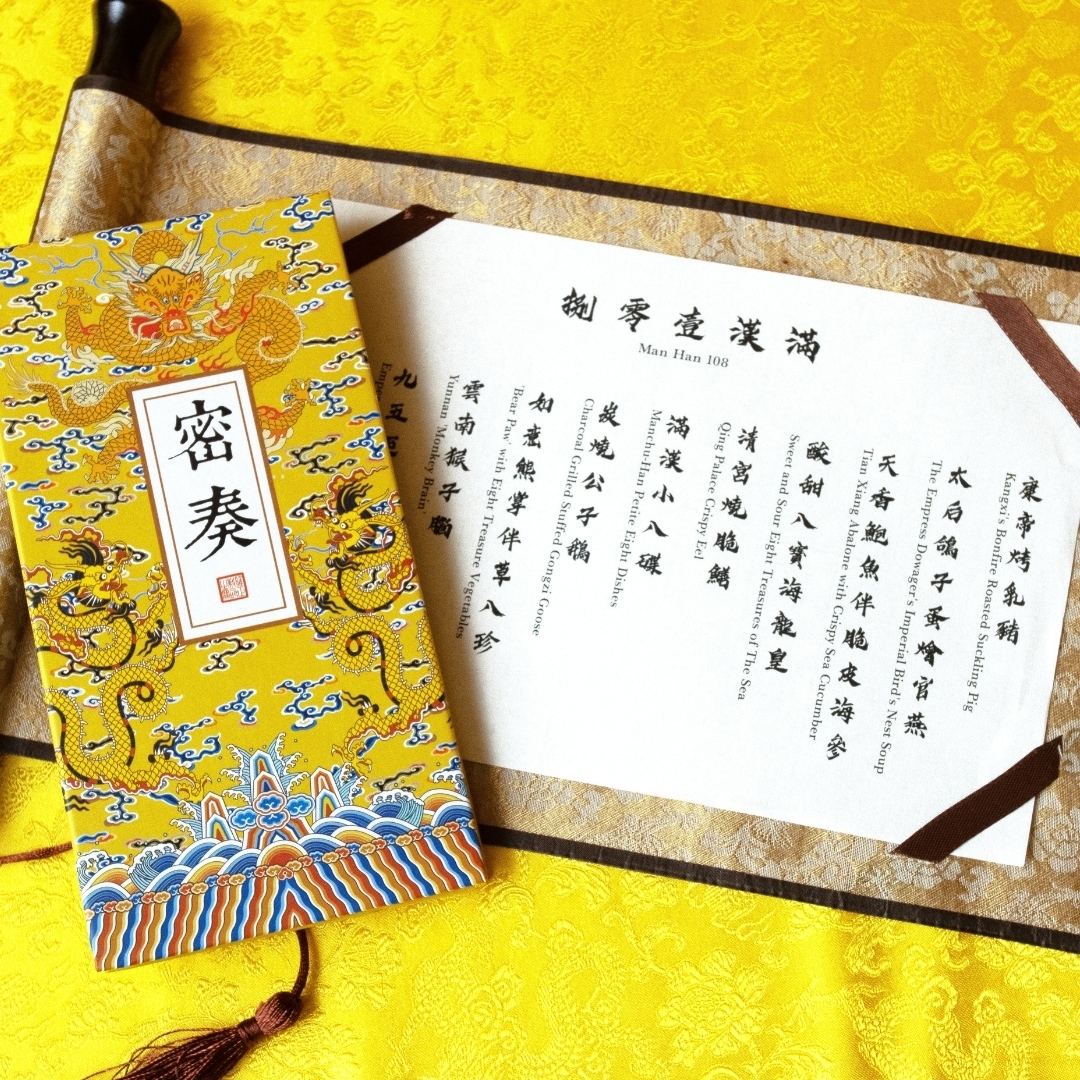 密奏
滿漢壹零捌
Man Han 108
康帝烤乳豬
Kangxi's Bonfire Roasted Suckling Pig
太后鴿子蛋燴官燕
The Empress Dowager's Imperial Bird's Nest Soup
天香鮑魚伴脆皮海參
Tian Xiang Abalone with Crispy Sea Cucumber
酸甜八寶海龍皇
Sweet and Sour Eight Treasures of The Sea
清宮燒脆鱔
Qing Palace Crispy Eel
滿漢小八碟
Manchu-Han Petite Eight Dishes
炭燒公子鵝
Charcoal Grilled Stuffed Gongzi Goose
如意熊掌伴草八珍
'Bear Paw' with Eight Treasure Vegetables
雲南猴子腦
Yunnan 'Monkey Brain'
九五